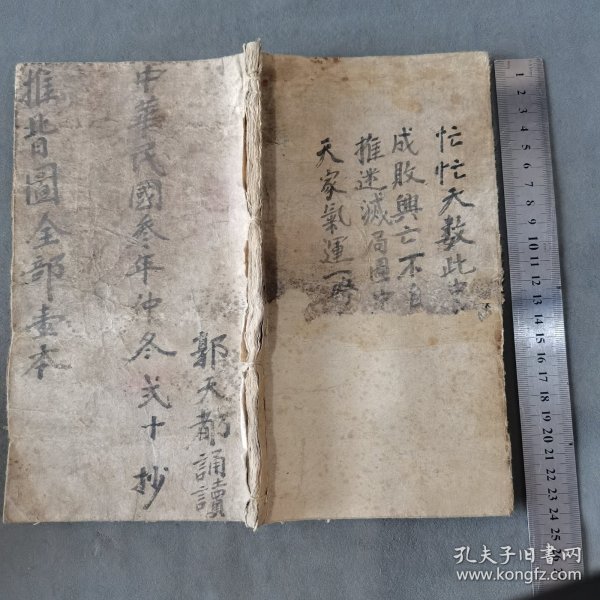 忙忙天数此中
成敗興亡不自
推迷滅局圖中
天家氣運一
郭天都誦讀
中華民國叁年仲冬弍十抄
推背圖全部壹本
孔夫子旧书网
www.kongfz.com
1 2 3 4 5 6 7 8 9 10 11 12 13 14 15 16 17 18 19 20 21 22 23 24 25